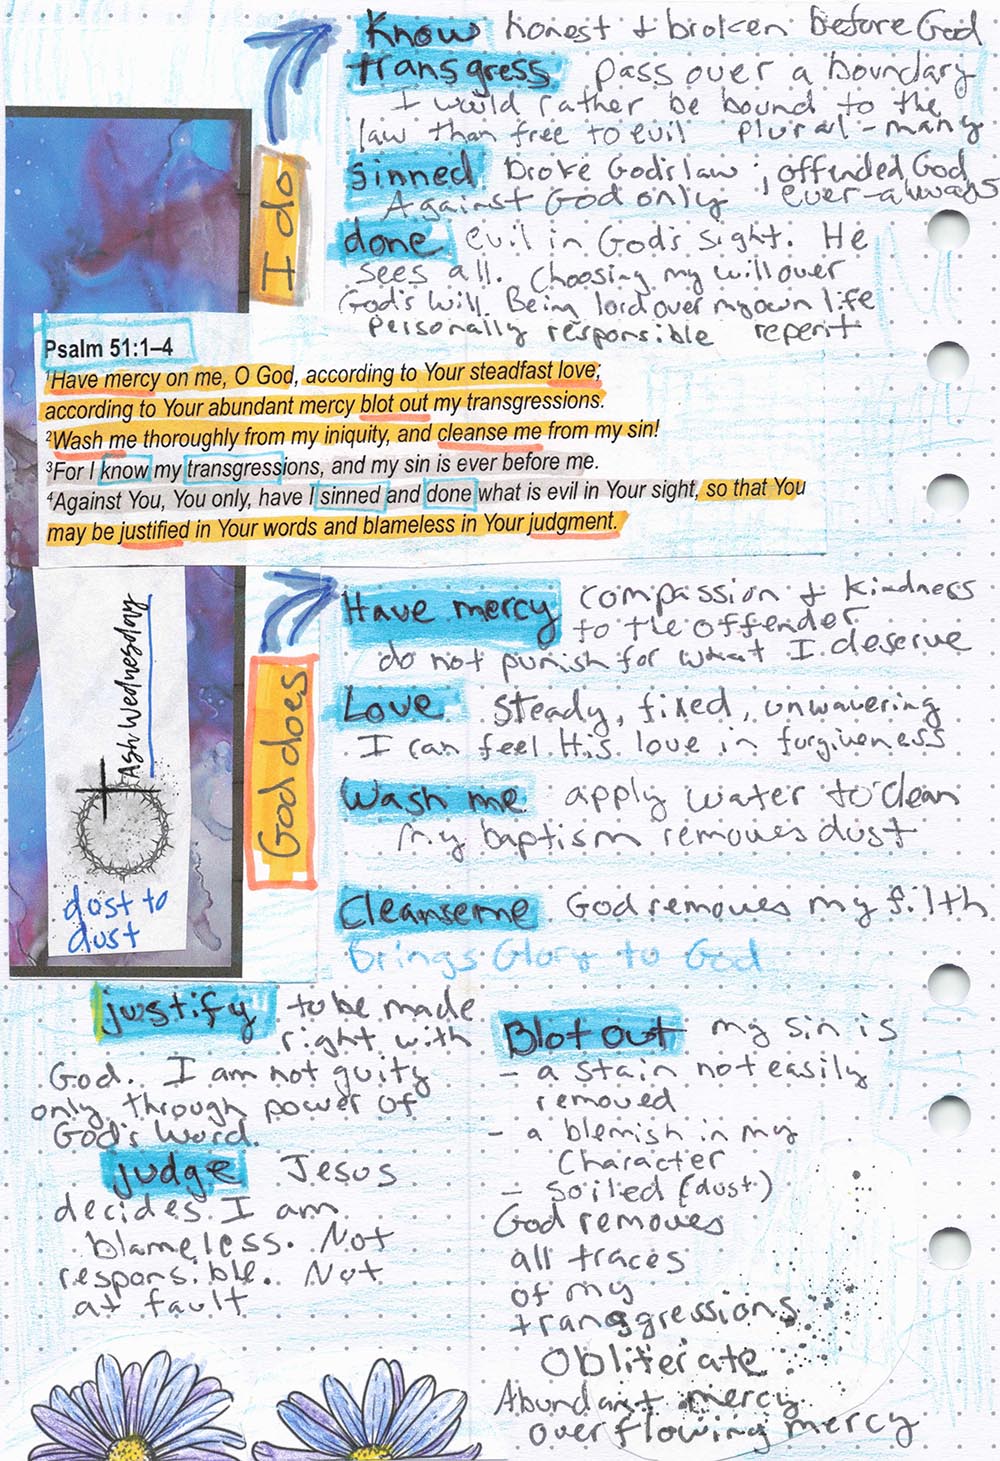 Know honest + broken before God
transgress pass over a boundary
I would rather be bound to the
law than free to evil plural - many
sinned broke God's law ; offended God
Against God only ever-always
done evil in God's sight. He
sees all. Choosing my will over
God's Will. Being lord over my own life
Personally responsible repent
I do
Psalm 51:1–4
1Have mercy on me, O God, according to Your steadfast love;
according to Your abundant mercy blot out my transgressions.
2Wash me thoroughly from my iniquity, and cleanse me from my sin!
3For I know my transgressions, and my sin is ever before me.
4Against You, You only, have I sinned and done what is evil in Your sight, so that You
may be justified in Your words and blameless in Your judgment.
Ash Wednesday
dust to
dust
God does
Have mercy compassion + kindness
to the offender
do not punish for what I deserve
Love steady, fixed, unwavering
I can feel His love in forgiveness
Wash me apply water to clean
My baptism removes dust
Cleanse me God removes my filth
Brings Glory to God
justify to be made
right with
God. I am not guity
only through power of
God's Word.
judge Jesus
decides I am
blameless. Not
responsible. Not
at fault
Blot out my sin is
- a stain not easily
removed
- a blemish in my
Character
- soiled (dust)
God removes
all traces
of my
transgressions
Obliterate
Abundant mercy
overflowing mercy